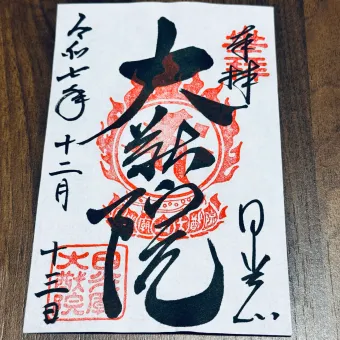 奉拝
日光山
大猷院
令和七年十二月
十三日